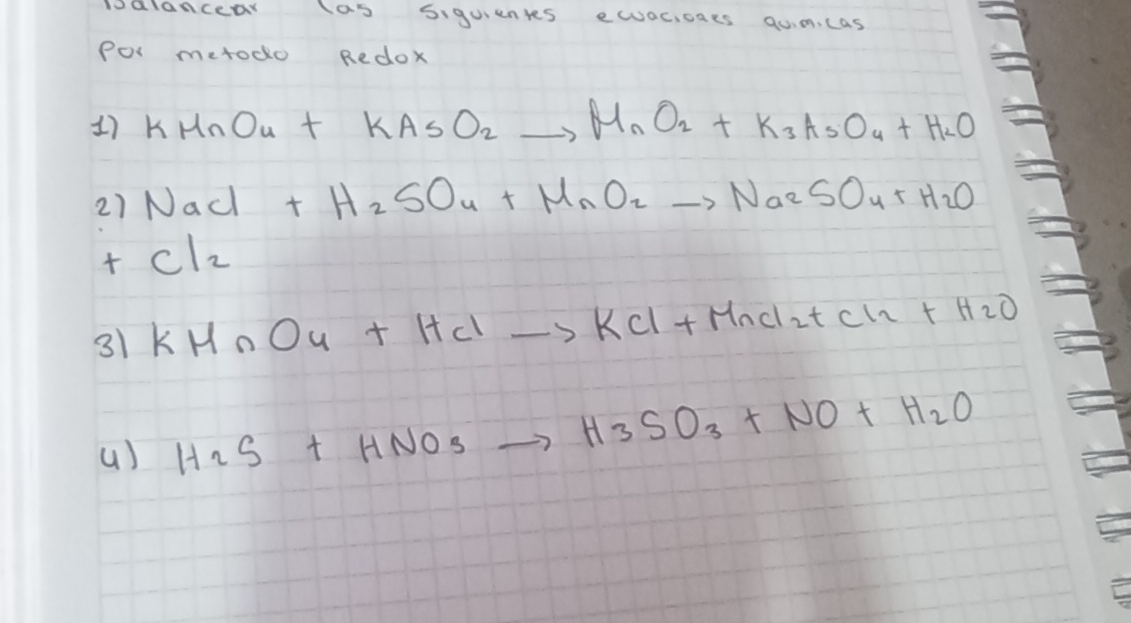 Balancear las siguientes ecuaciones quimicas
Por metodo Redox
1) KMnO4 + KAsO2 → MnO2 + K3AsO4 + H2O
2) Nacl + H2SO4 + MnO2 → Na2SO4 + H2O
+ Cl2
3) KMnO4 + Hcl → Kcl + Mncl2 + cl2 + H2O
4) H2S + HNO3 → H3SO3 + NO + H2O